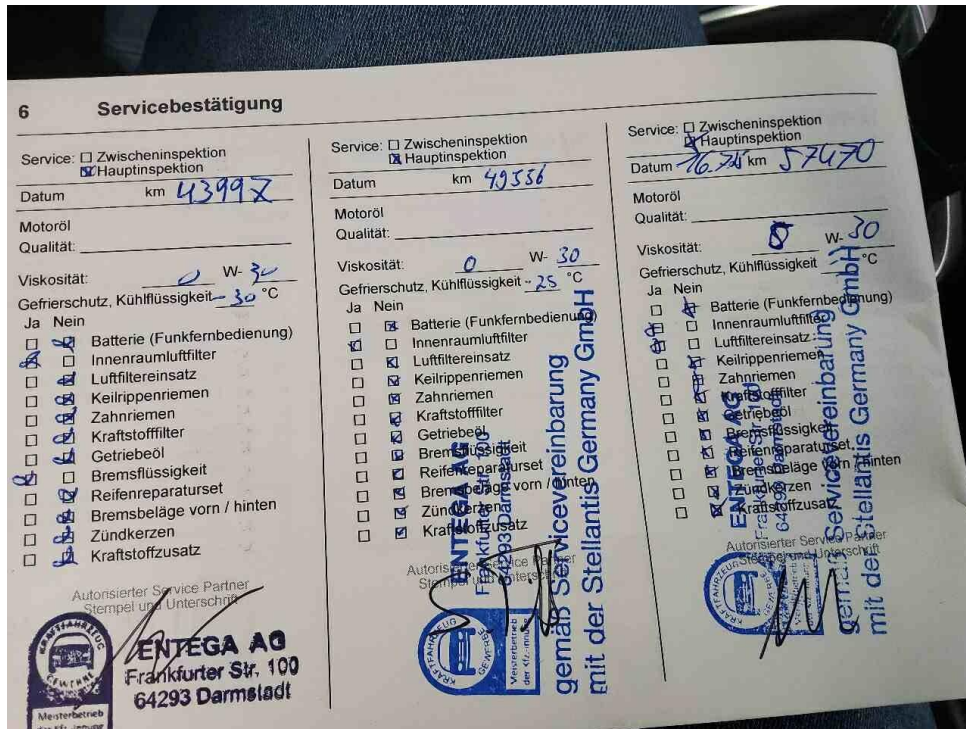 6 Servicebestätigung
Service: Zwischeninspektion
Hauptinspektion
Datum km 43997
Motoröl
Qualität:
Viskosität: 0 W- 30
Gefrierschutz, Kühlflüssigkeit - 30 °C
Ja Nein
Batterie (Funkfernbedienung)
Innenraumluftfilter
Luftfiltereinsatz
Keilrippenriemen
Zahnriemen
Kraftstofffilter
Getriebeöl
Bremsflüssigkeit
Reifenreparaturset
Bremsbeläge vorn / hinten
Zündkerzen
Kraftstoffzusatz
Autorisierter Service Partner
Stempel und Unterschrift
KRAFTFAHRZEUG
GEWERBE
Meisterbetrieb
der Kfz-Innung
ENTEGA AG
Frankfurter Str. 100
64293 Darmstadt
Service: Zwischeninspektion
Hauptinspektion
Datum km 49536
Motoröl
Qualität:
Viskosität: 0 W- 30
Gefrierschutz, Kühlflüssigkeit - 25 °C
Ja Nein
Batterie (Funkfernbedienung)
Innenraumluftfilter
Luftfiltereinsatz
Keilrippenriemen
Zahnriemen
Kraftstofffilter
Getriebeöl
Bremsflüssigkeit
Reifenreparaturset
Bremsbeläge vorn / hinten
Zündkerzen
Kraftstoffzusatz
Autorisierter Service Partner
Stempel und Unterschrift
KRAFTFAHRZEUG
GEWERBE
Meisterbetrieb
der Kfz-Innung
ENTEGA AG
Frankfurter Str. 100
64293 Darmstadt
gemäß Servicevereinbarung
mit der Stellantis Germany GmbH
Service: Zwischeninspektion
Hauptinspektion
Datum 16.7.25 km 57470
Motoröl
Qualität:
Viskosität: 0 W- 30
Gefrierschutz, Kühlflüssigkeit °C
Ja Nein
Batterie (Funkfernbedienung)
Innenraumluftfilter
Luftfiltereinsatz
Keilrippenriemen
Zahnriemen
Kraftstofffilter
Getriebeöl
Bremsflüssigkeit
Reifenreparaturset
Bremsbeläge vorn / hinten
Zündkerzen
Kraftstoffzusatz
Autorisierter Service Partner
Stempel und Unterschrift
KRAFTFAHRZEUG
GEWERBE
Meisterbetrieb
der Kfz-Innung
ENTEGA AG
Frankfurter Str. 100
64293 Darmstadt
gemäß Servicevereinbarung
mit der Stellantis Germany GmbH